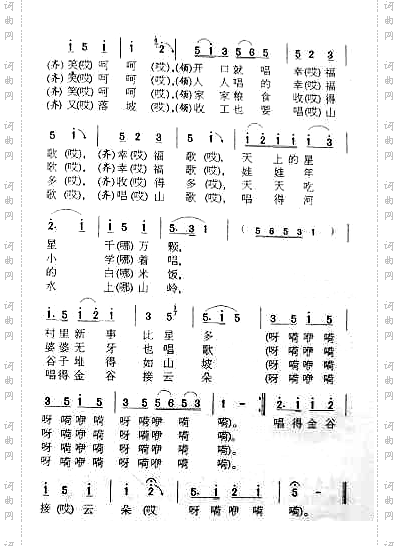 i 5 i | i i | 5 i 3 5 6 5 | 5 2 3
(齐)笑(哎)呵 呵 (哎),(领)开 口 就 唱 幸(哎)福
(齐)笑(哎)呵 呵 (哎),(领)人 人 唱 的 幸(哎)福
(齐)笑(哎)呵 呵 (哎),(领)家 家 粮 食 收(哎)得
(齐)又(哎)落 坡 (哎),(领)收 工 也 要 唱(哎)山
5 i | 6 2 2 | 5 i | i 2 i i i i 3
歌(哎),(齐)幸(哎)福 歌(哎), 天 上 的 星
歌(哎),(齐)幸(哎)福 歌(哎), 娃 娃 年
多(哎),(齐)收(哎)得 多(哎), 天 天 吃
歌(哎),(齐)唱(哎)山 歌(哎), 唱 得 河
2. i | i 6 2 | 5. 3 1 | ( 5 6 5 3 1 )
星 千(哪)万 颗,
小 学(哪)着 唱,
的 白(哪)米 饭,
水 上(哪)山 岭,
i. 5 i 2 | i 3 5 | 5. i 5 | 3 5 i 5
村里新 事 比 星 多 (呀 嗬咿 嗬
婆婆无 牙 也 唱 歌 (呀 嗬咿 嗬
谷子堆 得 如 山 坡 (呀 嗬咿 嗬
唱得金 谷 接 云 朵 (呀 嗬咿 嗬
3 5 i 5 | 3 5 5 6 5 3 | 1 - :| 2. i i 2
呀 嗬咿 嗬 呀 嗬咿 嗬 嗬)。 唱 得金 谷
呀 嗬咿 嗬 呀 嗬咿 嗬 嗬)。
呀 嗬咿 嗬 呀 嗬咿 嗬 嗬)。
呀 嗬咿 嗬 呀 嗬咿 嗬 嗬)。
i 5 i | i 2 | 5. i 6 2 | 5 - ‖
接(哎)云 朵 (哎 呀 嗬咿 嗬 嗬)。
词曲网